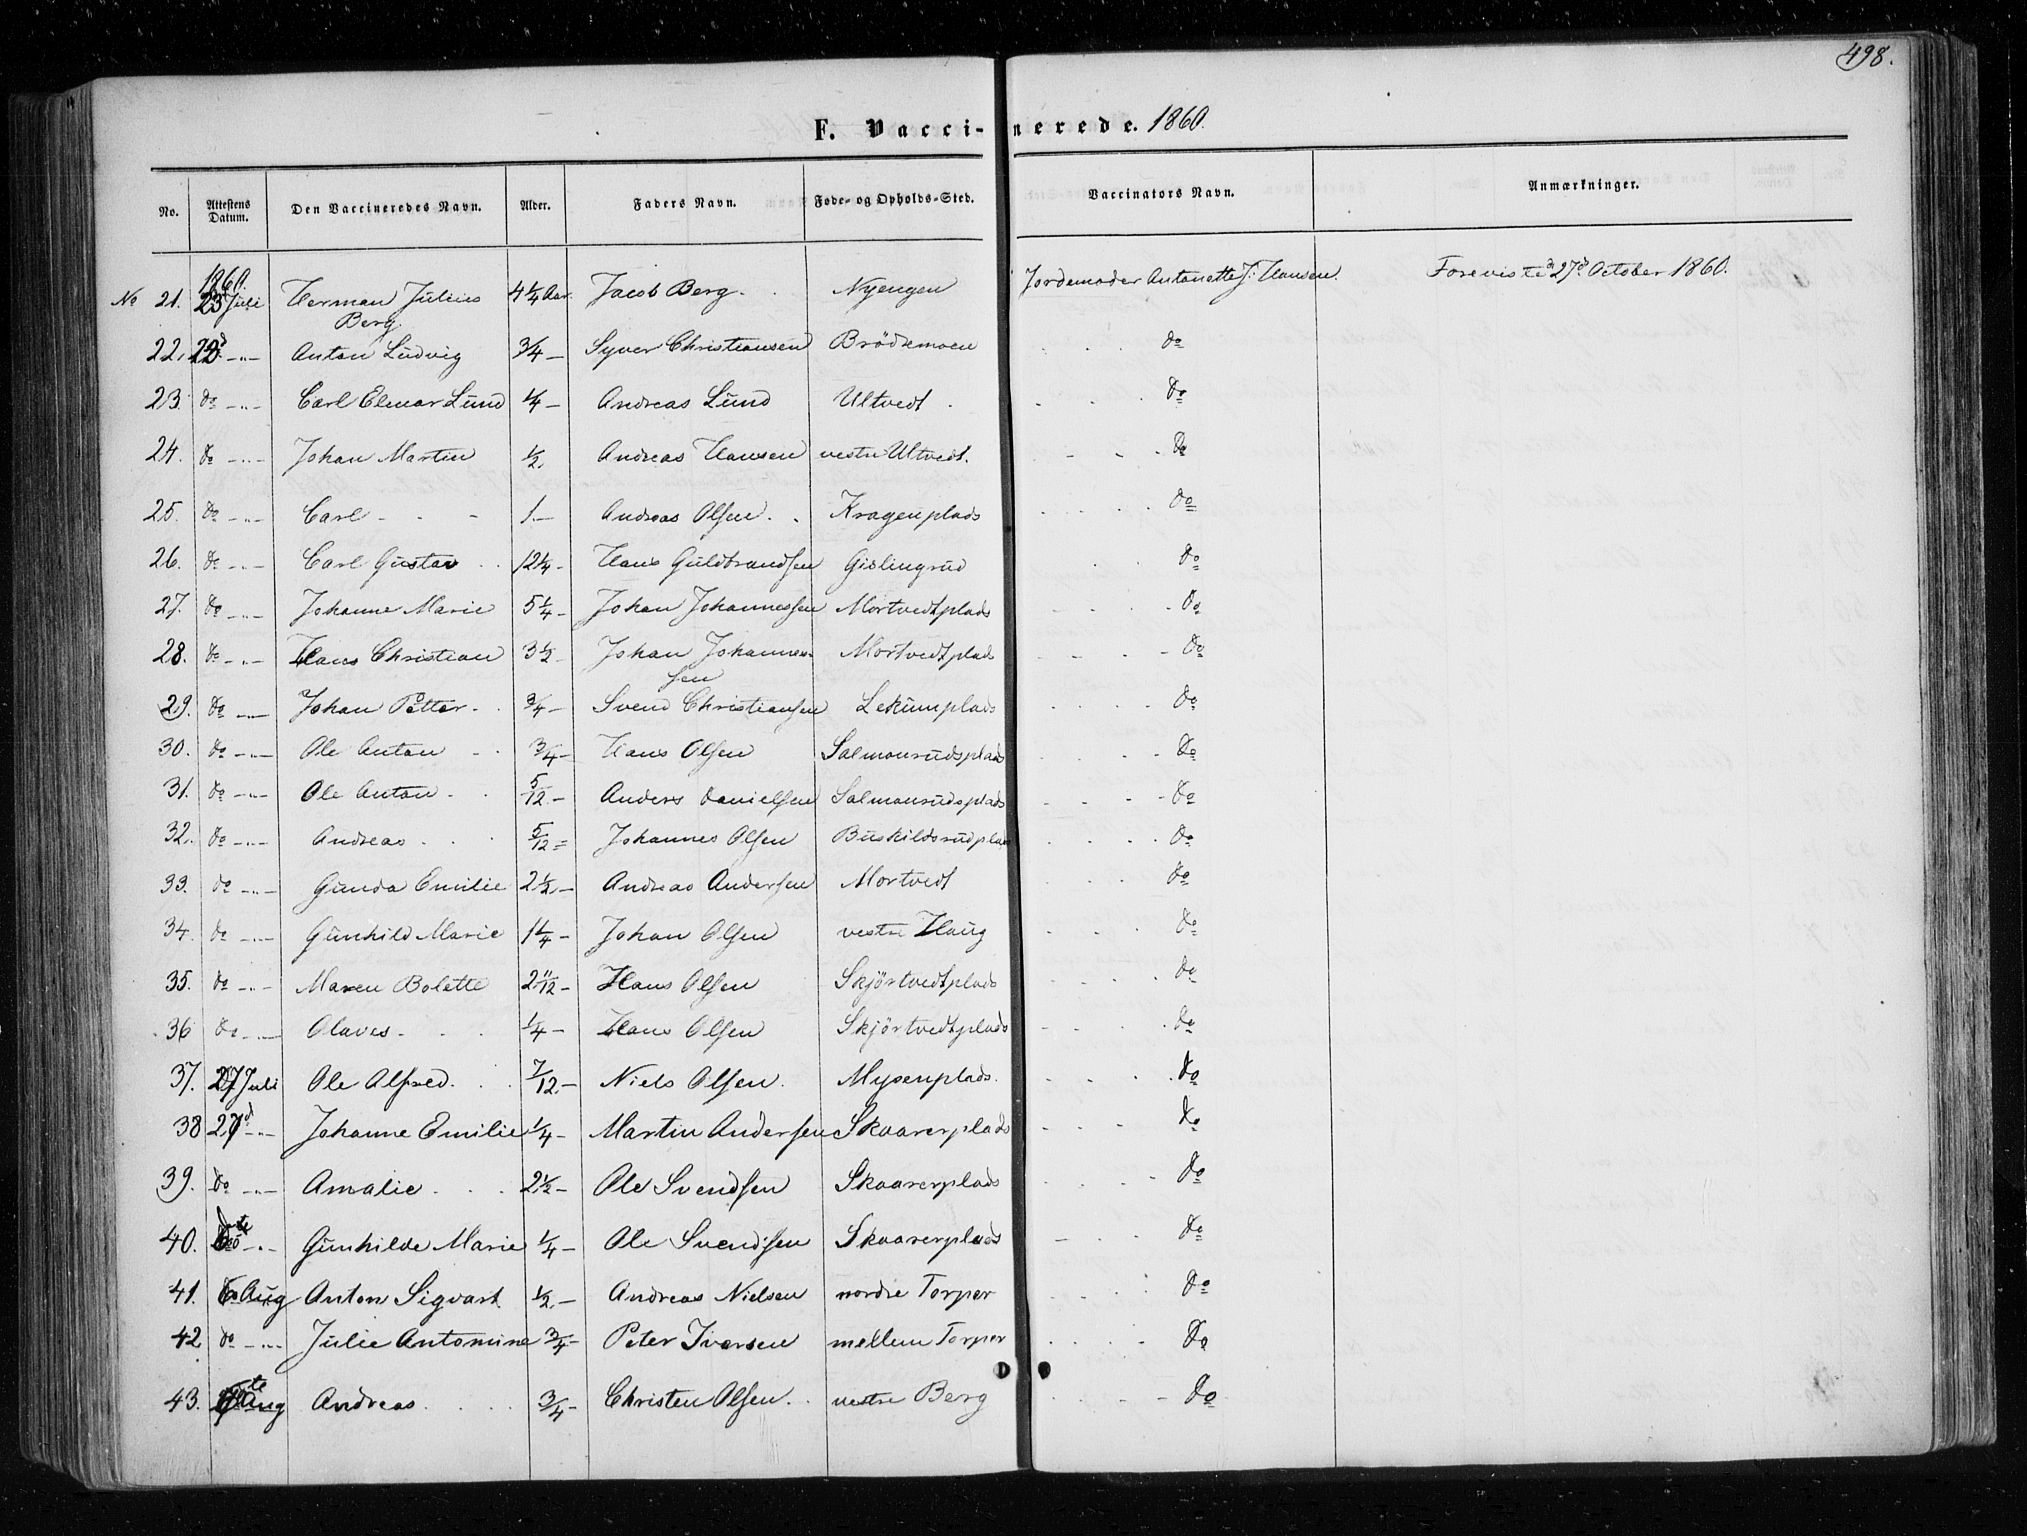 498.
F. Vaccinerede. 1860.
No. Attestens Datum. Den Vaccineredes Navn. Alder. Faders Navn. Føde- og Opholds-Sted. Vaccinators Navn. Anmærkninger.
1860.
No 21. 23 Juli Herman Julius Berg 4 1/4 Aar. Jacob Berg. Nyengen Jordemoder Antonette J: Hansen. Foreviste d. 27d October 1860.
22. -"- Anton Ludvig 3/4 - Syver Christiansen Brödremoen do
23. do -"- Carl Elmar Lund 1/4 - Andreas Lund Ultvedt. do
24. do -"- Johan Martin 1/2. Andreas Hansen vestre Ultvedt. do
25. do -"- Carl - - - 1.- Andreas Olsen. Kragenplads do
26. do -"- Carl Gustav 12 1/4 - Hans Guldbrandsen Gislingrud do
27. do -"- Johanne Marie 5 1/4 - Johan Johannessen Mortvedtplads do
28. do -"- Hans Christian 3 1/2 - Johan Johannessen Mortvedtplads do
29. do -"- Johan Petter 3/4 - Svend Christiansen Lekumplads do
30. do -"- Ole Anton 3/4 - Hans Olsen Salmonrudsplads do
31. do -"- Ole Anton 5/12.- Anders Danielsen Salmonrudsplads do
32. do -"- Andreas 5/12 = Johannes Olsen Buskildsrudplads do
33. do -"- Gunda Emilie 2 1/2.- Andreas Andersen Mortvedt do
34. do -"- Gunhild Marie 1 1/4 - Johan Olsen vestre Haug do
35. do -"- Maren Bolette 2 11/12 - Hans Olsen Skjörtvedtplads do
36 do -"- Olaves. 1/4 - Hans Olsen Skjörtvedtplads do
37. 27 Juli Ole Alfred. 7/12.- Niels Olsen. Mysenplads. do
38 27d -"- Johanne Emilie 1/4 - Martin Andersen Skaarerplads do
39. do -"- Amalie 2 1/2 - Ole Svendsen Skaarerplads do
40. -"- Gunhilde Marie 1/4 - Ole Svendsen Skaarerplads do
41. Aug Anton Sigvart 1/2.- Andreas Nielsen nordre Torper do
42 do -"- Julie Antomine 3/4 - Peter Iversen mellem Torper do
43. Aug Andreas 3/4 - Christen Olsen. vestre Berg do